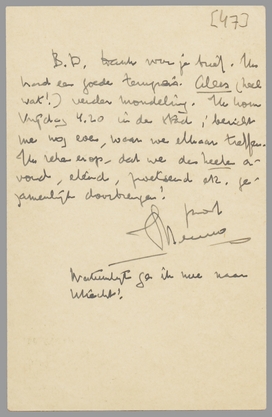 [47]
B.D. Dank voor je brief. Ik
vond een goede temp. Alles (heel
wat!) verder mondeling. Ik kom
Vrijdag 4.20 in de stad; bericht
me nog even, waar we elkaar treffen.
Ik reken erop, dat we den heelen a-
vond, etend, pratend etc. ge-
zamenlijk doorbrengen!
groet
Menno
Natuurlijk ga ik mee naar
Utrecht!